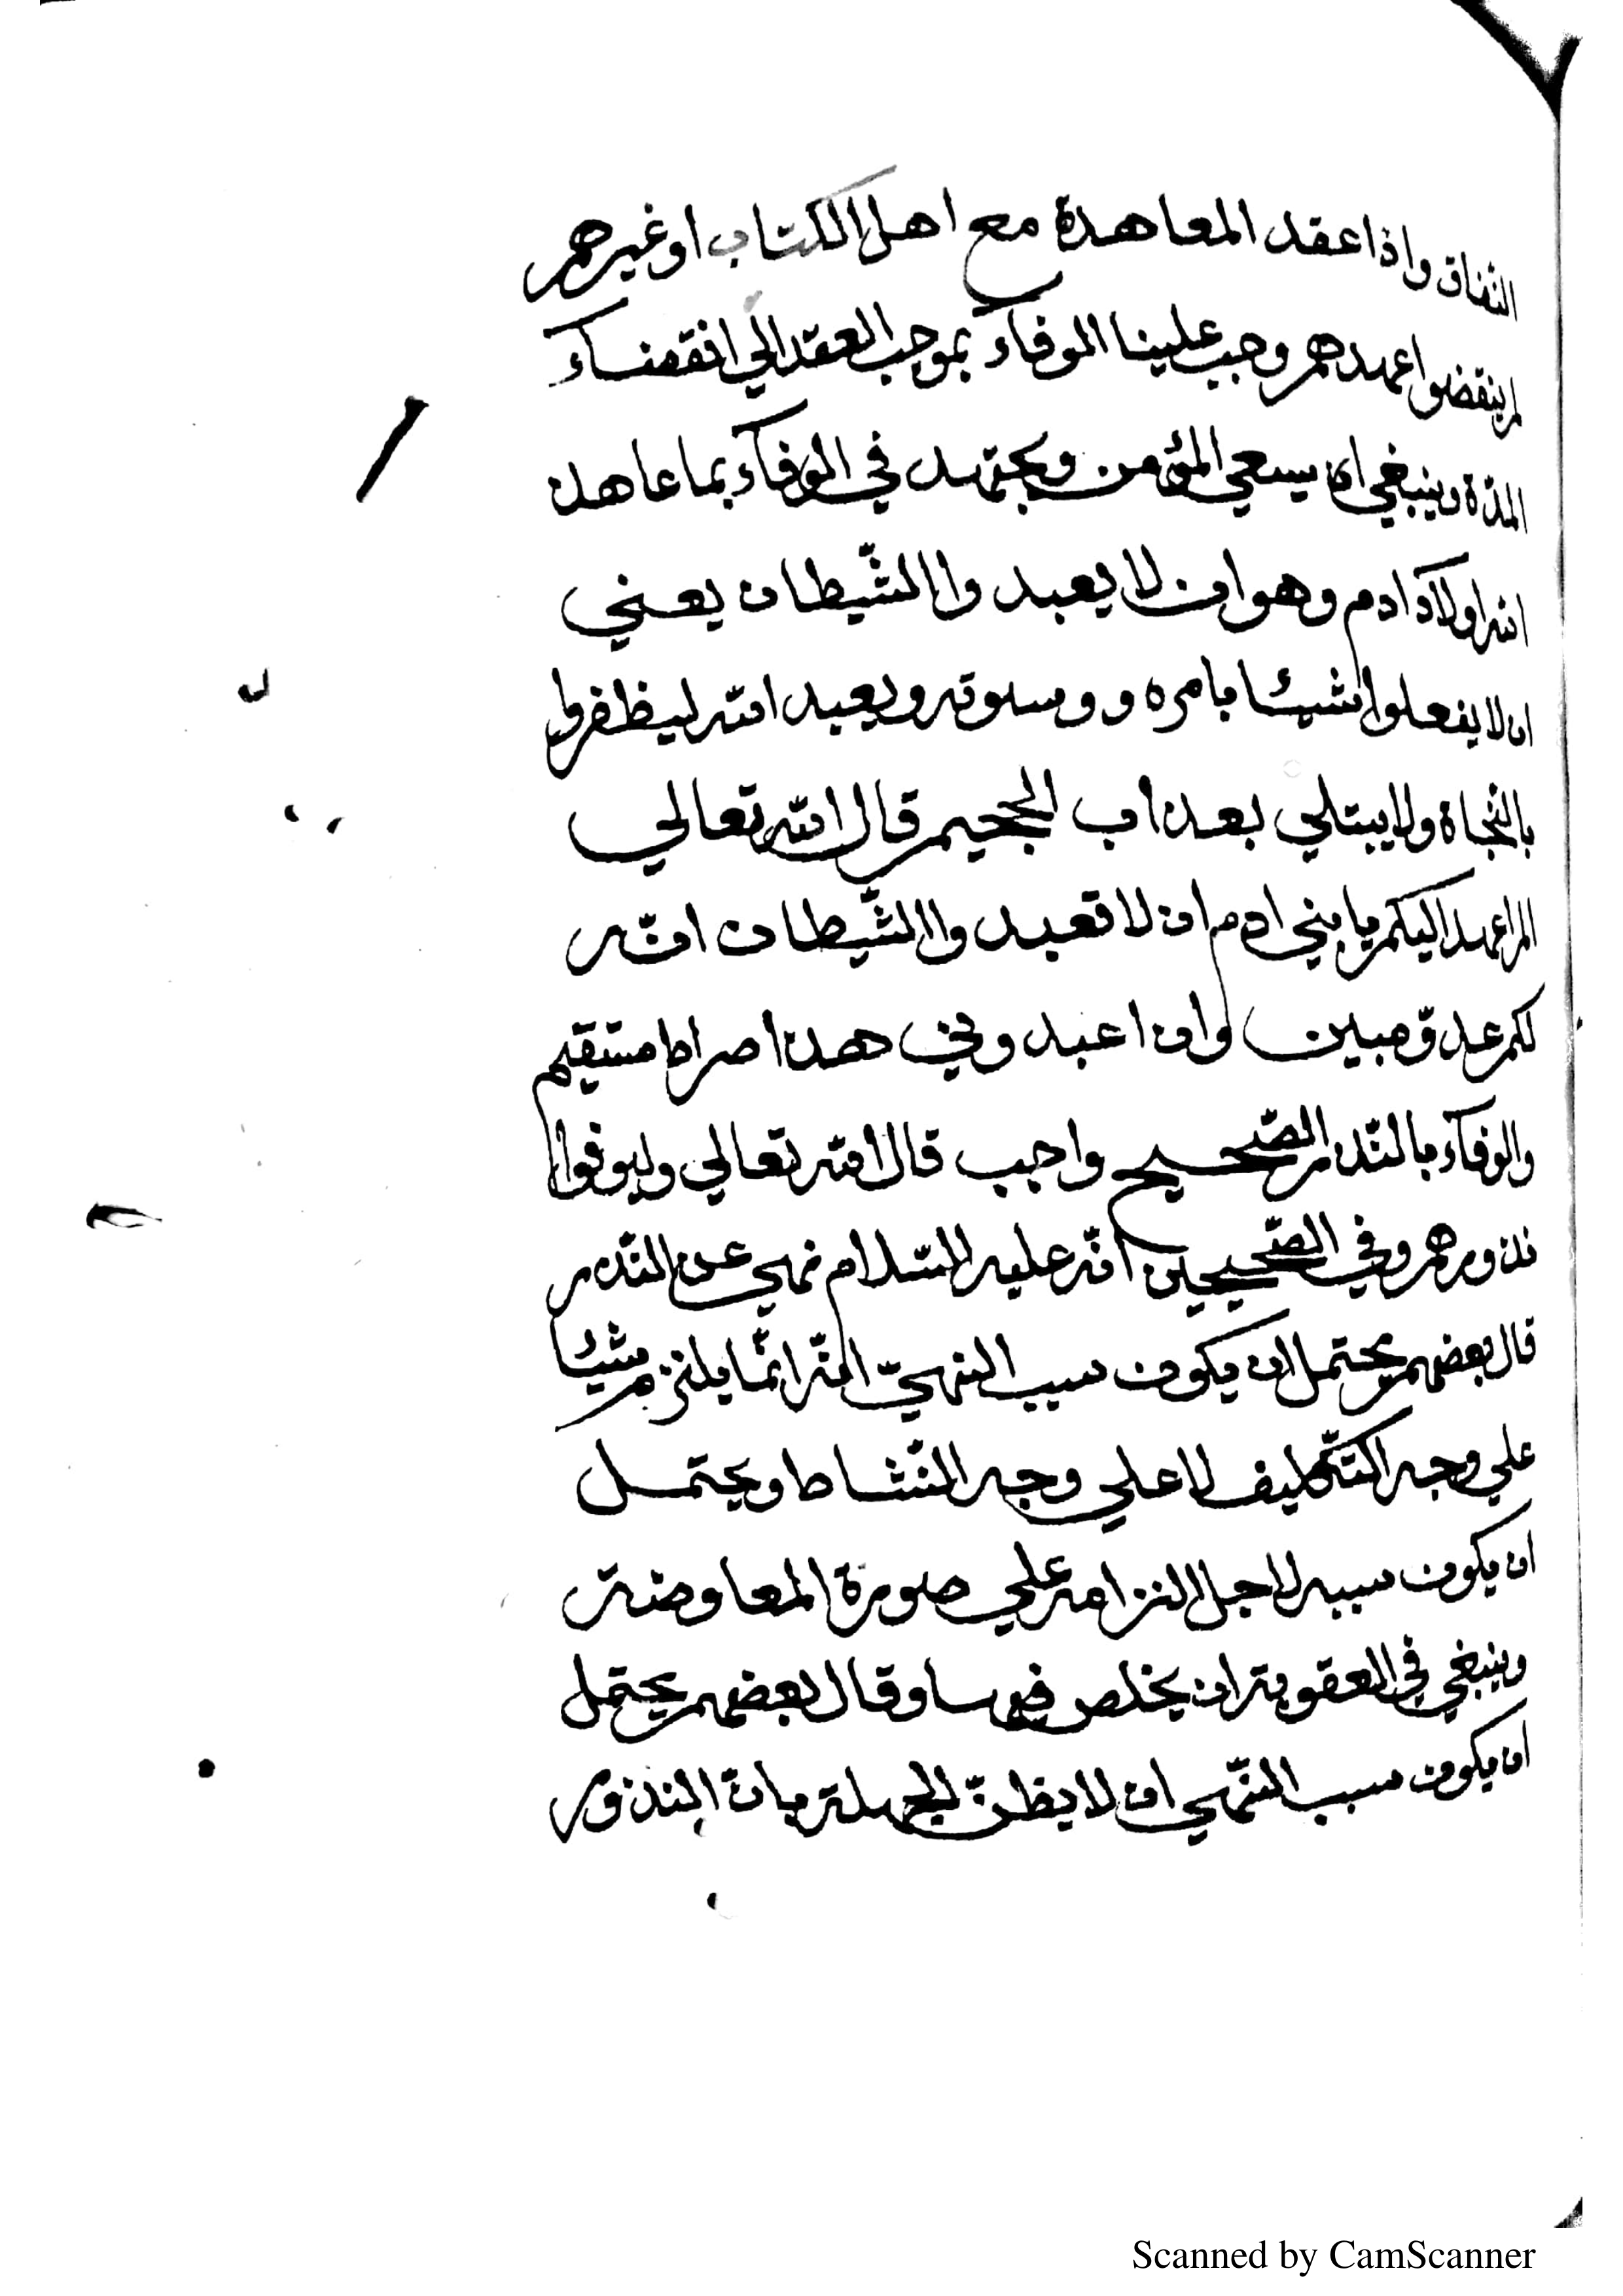 النفاق واذا عقد المعاهدة مع اهل الكتاب او غيرهم
لم ينقضوا عهدهم وجب علينا الوفاء بموجب العقد الي انقضاء
المدّة وينبغي ان يسعي المؤمن ويجتهد في الوفاء بما عاهد
الله اولاد ادم وهو ان لا يعبدوا الشّيطان يعني
ان لا يفعلوا شيئا بامره ووسوته ويعبد الله ليظفروا
بالنّجاة ولا يبتلي بعذاب الجحيم قال الله تعالي
الم اعهد اليكم يا بني ادم ان لا تعبدوا الشّيطان انّه
لكم عدوّ مبين وان اعبدوني هذا صراط مستقيم
والوفاء بالنّذر الصّحيح واجب قال الله تعالي وليوفوا
نذورهم وفي الصّحيحين انّه عليه السّلام نهي عن النّذر
قال بعضهم يحتمل ان يكون سبب النهيّ انّه انّما يلتزم شيئا
علي وجه التّكليف لا علي وجه النّشاط ويحتمل
ان يكون سببه لاجل التزامه علي صورة المعاوضة
وينبغي في العقوبة ان يخلص وقال بعضهم يحتمل
ان يكون سبب النّهي ان لا يظنّ الجهلة بانّ النذور
Scanned by CamScanner